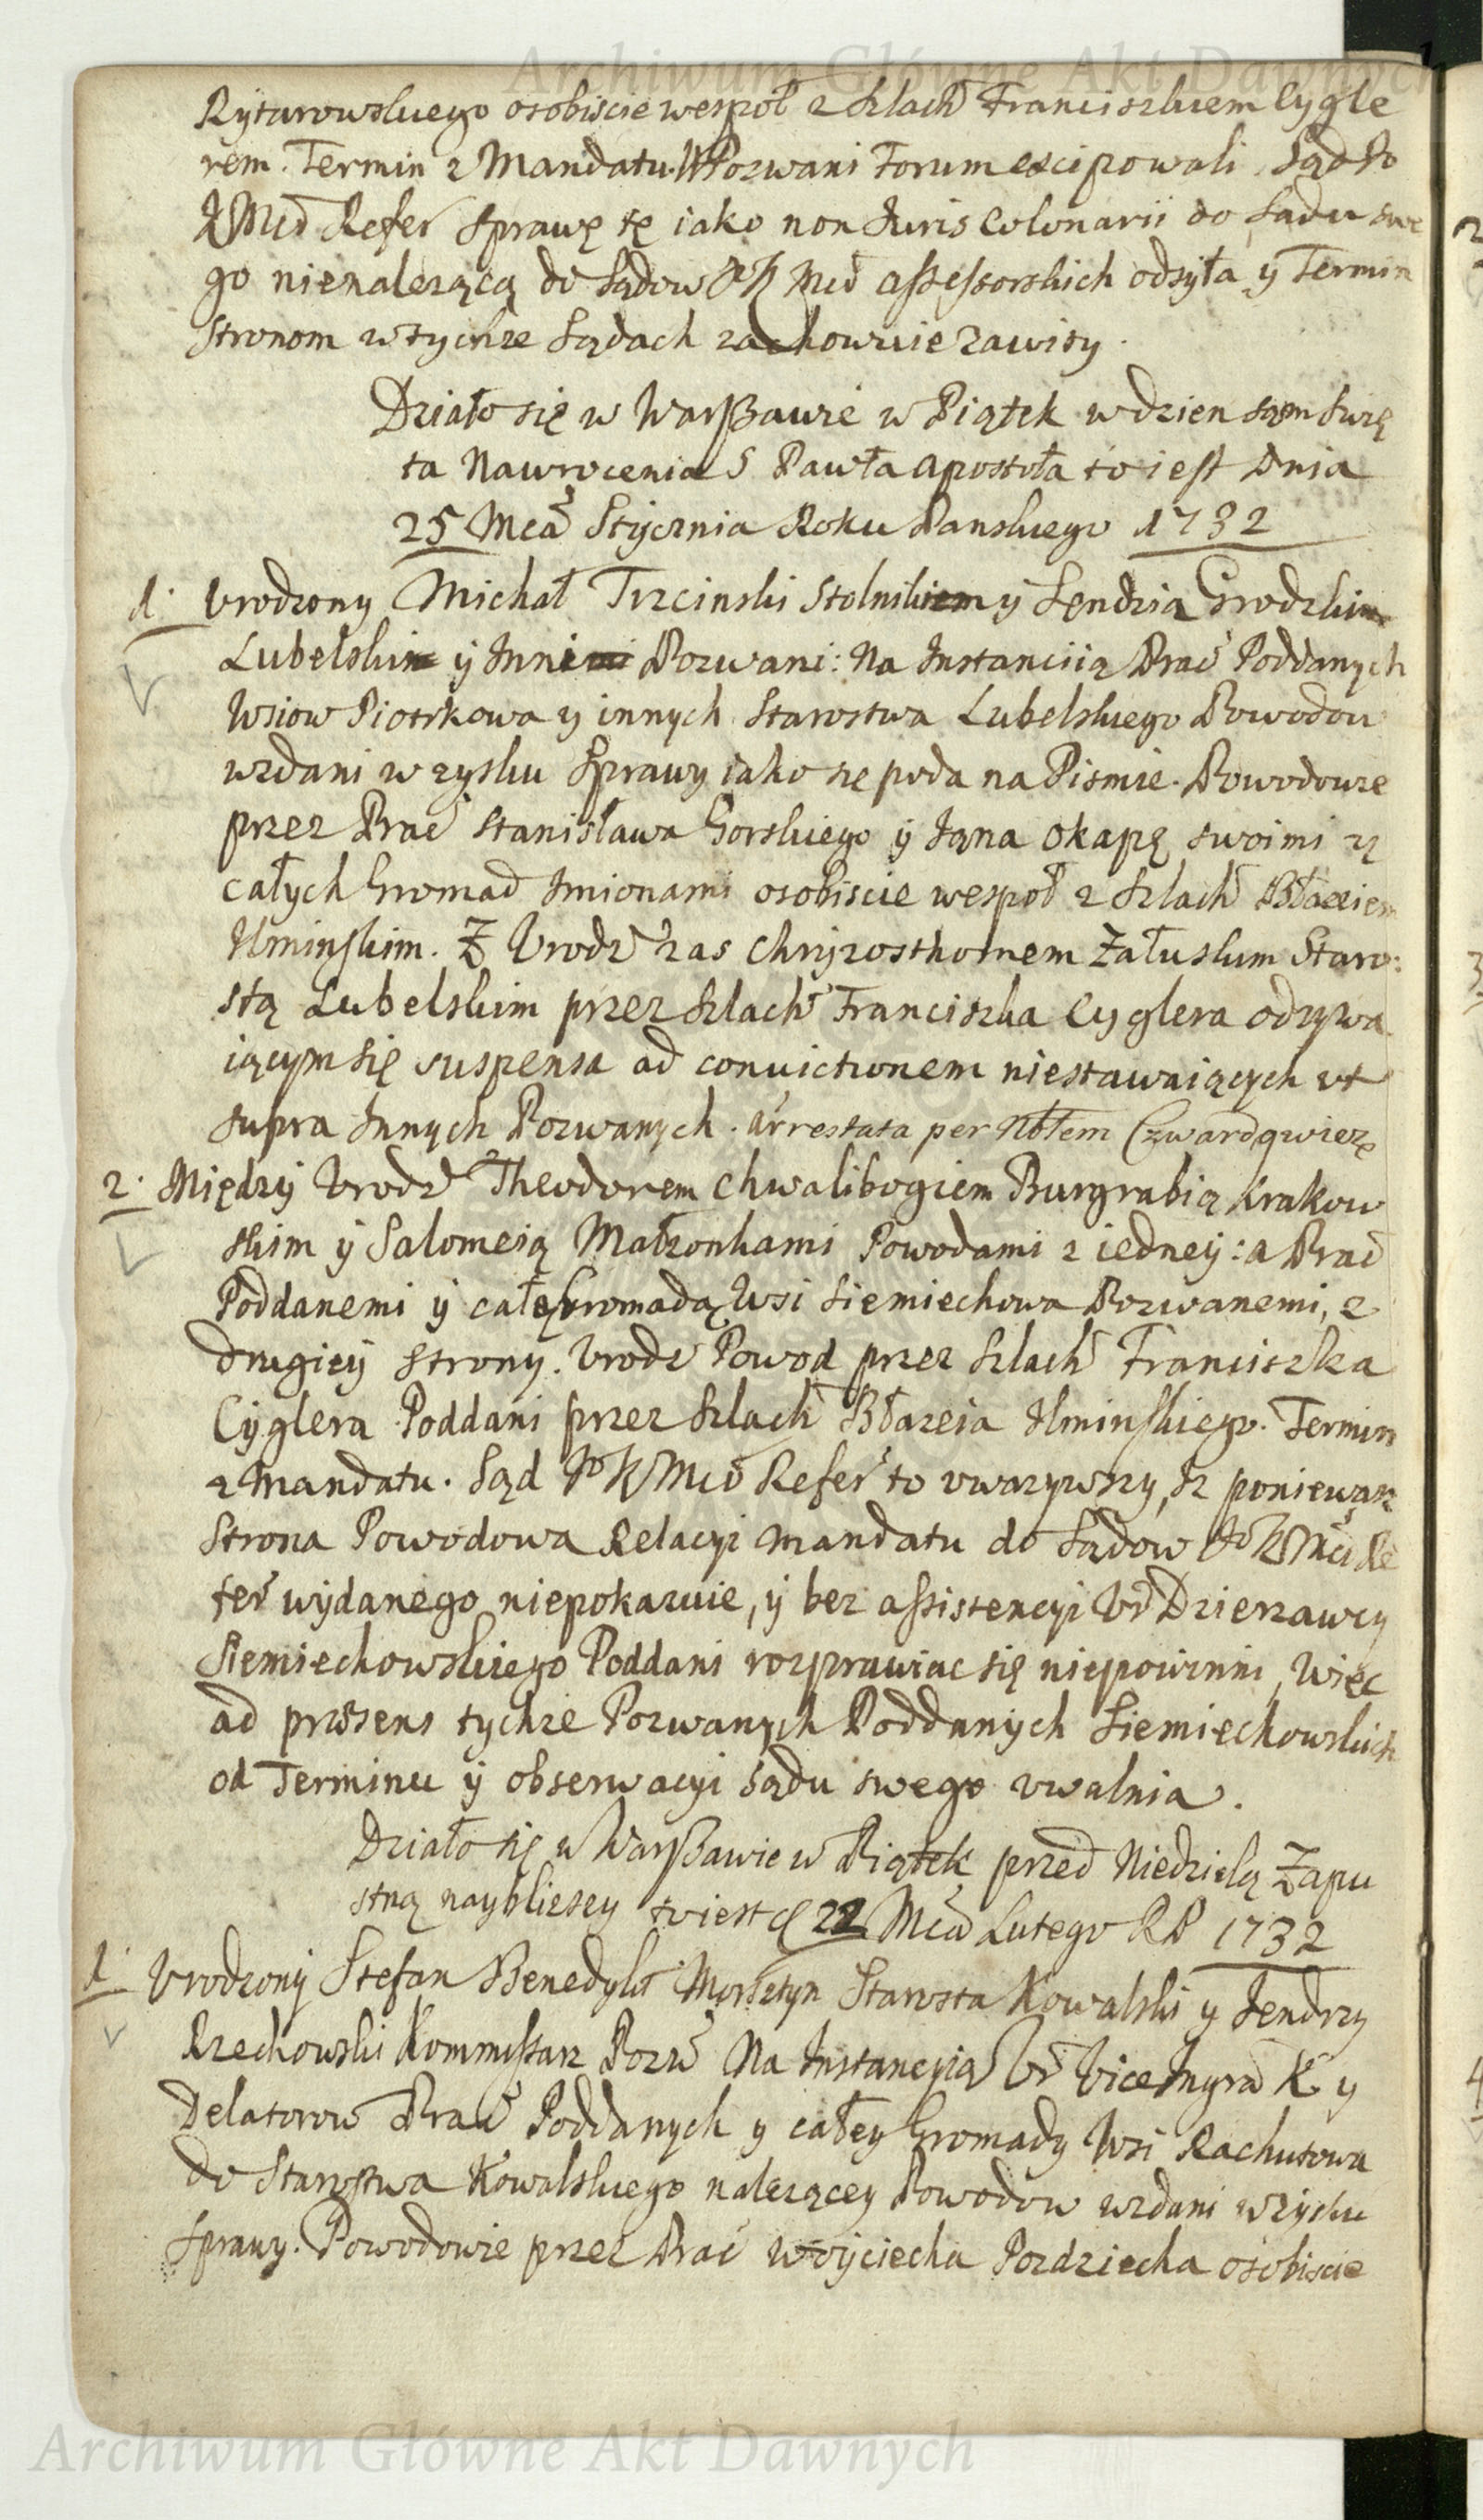 Archiwum Główne Akt Dawnych
Rytarowskiego osobiscie wespoł z Szlach Franciszkiem Cygle
rem. Termin z Mandatu. Pozwani Forum excipowali, Sąd Jo
K Mci Refer Sprawę tę iako non Juris Colonarii do Sadu swe
go nienalezącą do Sądow JK Mci assessorskich odsyła y Termin
Stronom w tychze Sądach zachownie zawity.
Działo się w Warszawie w Piątek w dzien sam Swię
ta Nawrocenia S Pawła Apostoła to iest Dnia
25 Mca Stycznia Roku Panskiego 1732
1. Urodzony Michał Trzcinski Stolnik y Sendzia Grodzki
Lubelski y Inni Pozwani: Na Instancią Prac Poddanych
Wsiow Piotrkowa y innych Starostwa Lubelskiego Powodow
wzdani w zysku Sprawy iako się poda na Pismie. Powodowie
przez Prac Stanisława Gorskiego y Jana Okapę swoimi y
całych Gromad Imionami osobiscie wespoł z Szlach Błazeiem
Ilminskim. Z Urodz zas Chryzosthomem Załuskim Staro:
stą Lubelskim przez Szlach Franciszka Cyglera odzywa
iącym się suspensa ad convictionem niestawaiących ut
supra Innych Pozwanych. Arrestata per Nobłem Czwardgwiezę
2. Między Urodz Theodorem Chwalibogiem Burgrabią Krakow
skim y Salomeią Małzonkami Powodami z iedney: a Prac
Poddanemi y całą Gromadą Wsi Siemiechowa Pozwanemi, z
drugiey strony. Urodz Powod przez Szlach Franciszka
Cyglera Poddani przez Szlach Błazeia Ilminskiego. Termin
z Mandatu. Sąd Jo K Mci Refer to uwazywszy, Iz poniewaz
Strona Powodowa Relacyi Mandatu do Sądow Jo K Mci Re
fer wydanego niepokazuie, y bez assistencyi Ur Dzierzawcy
Siemiechowskiego Poddani rozprawiac się niepowinni, Więc
ad præsens tychze Pozwanych Poddanych Siemiechowskich
od Terminu y obserwacyi Sądu swego uwalnia.
Działo się w Warszawie w Piątek przed Niedzielą Zapu
stną naybliszey to iest d 22 Mca Lutego RP 1732
1. Urodzony Stefan Benedykt Morsztyn Starosta Kowalski y Jendrzy
Rzechowski Kommissarz Pozw Na Instancyią Ur Vice Ingra K y
Delatorow Prac Poddanych y całey Gromady Wsi Rachutowa
do Starostwa Kowalskiego nalezącey Powodow wzdani w zysku
Sprawy. Powodowie przez Prac Woyciecha Pozdziecha osobiscie
Archiwum Główne Akt Dawnych